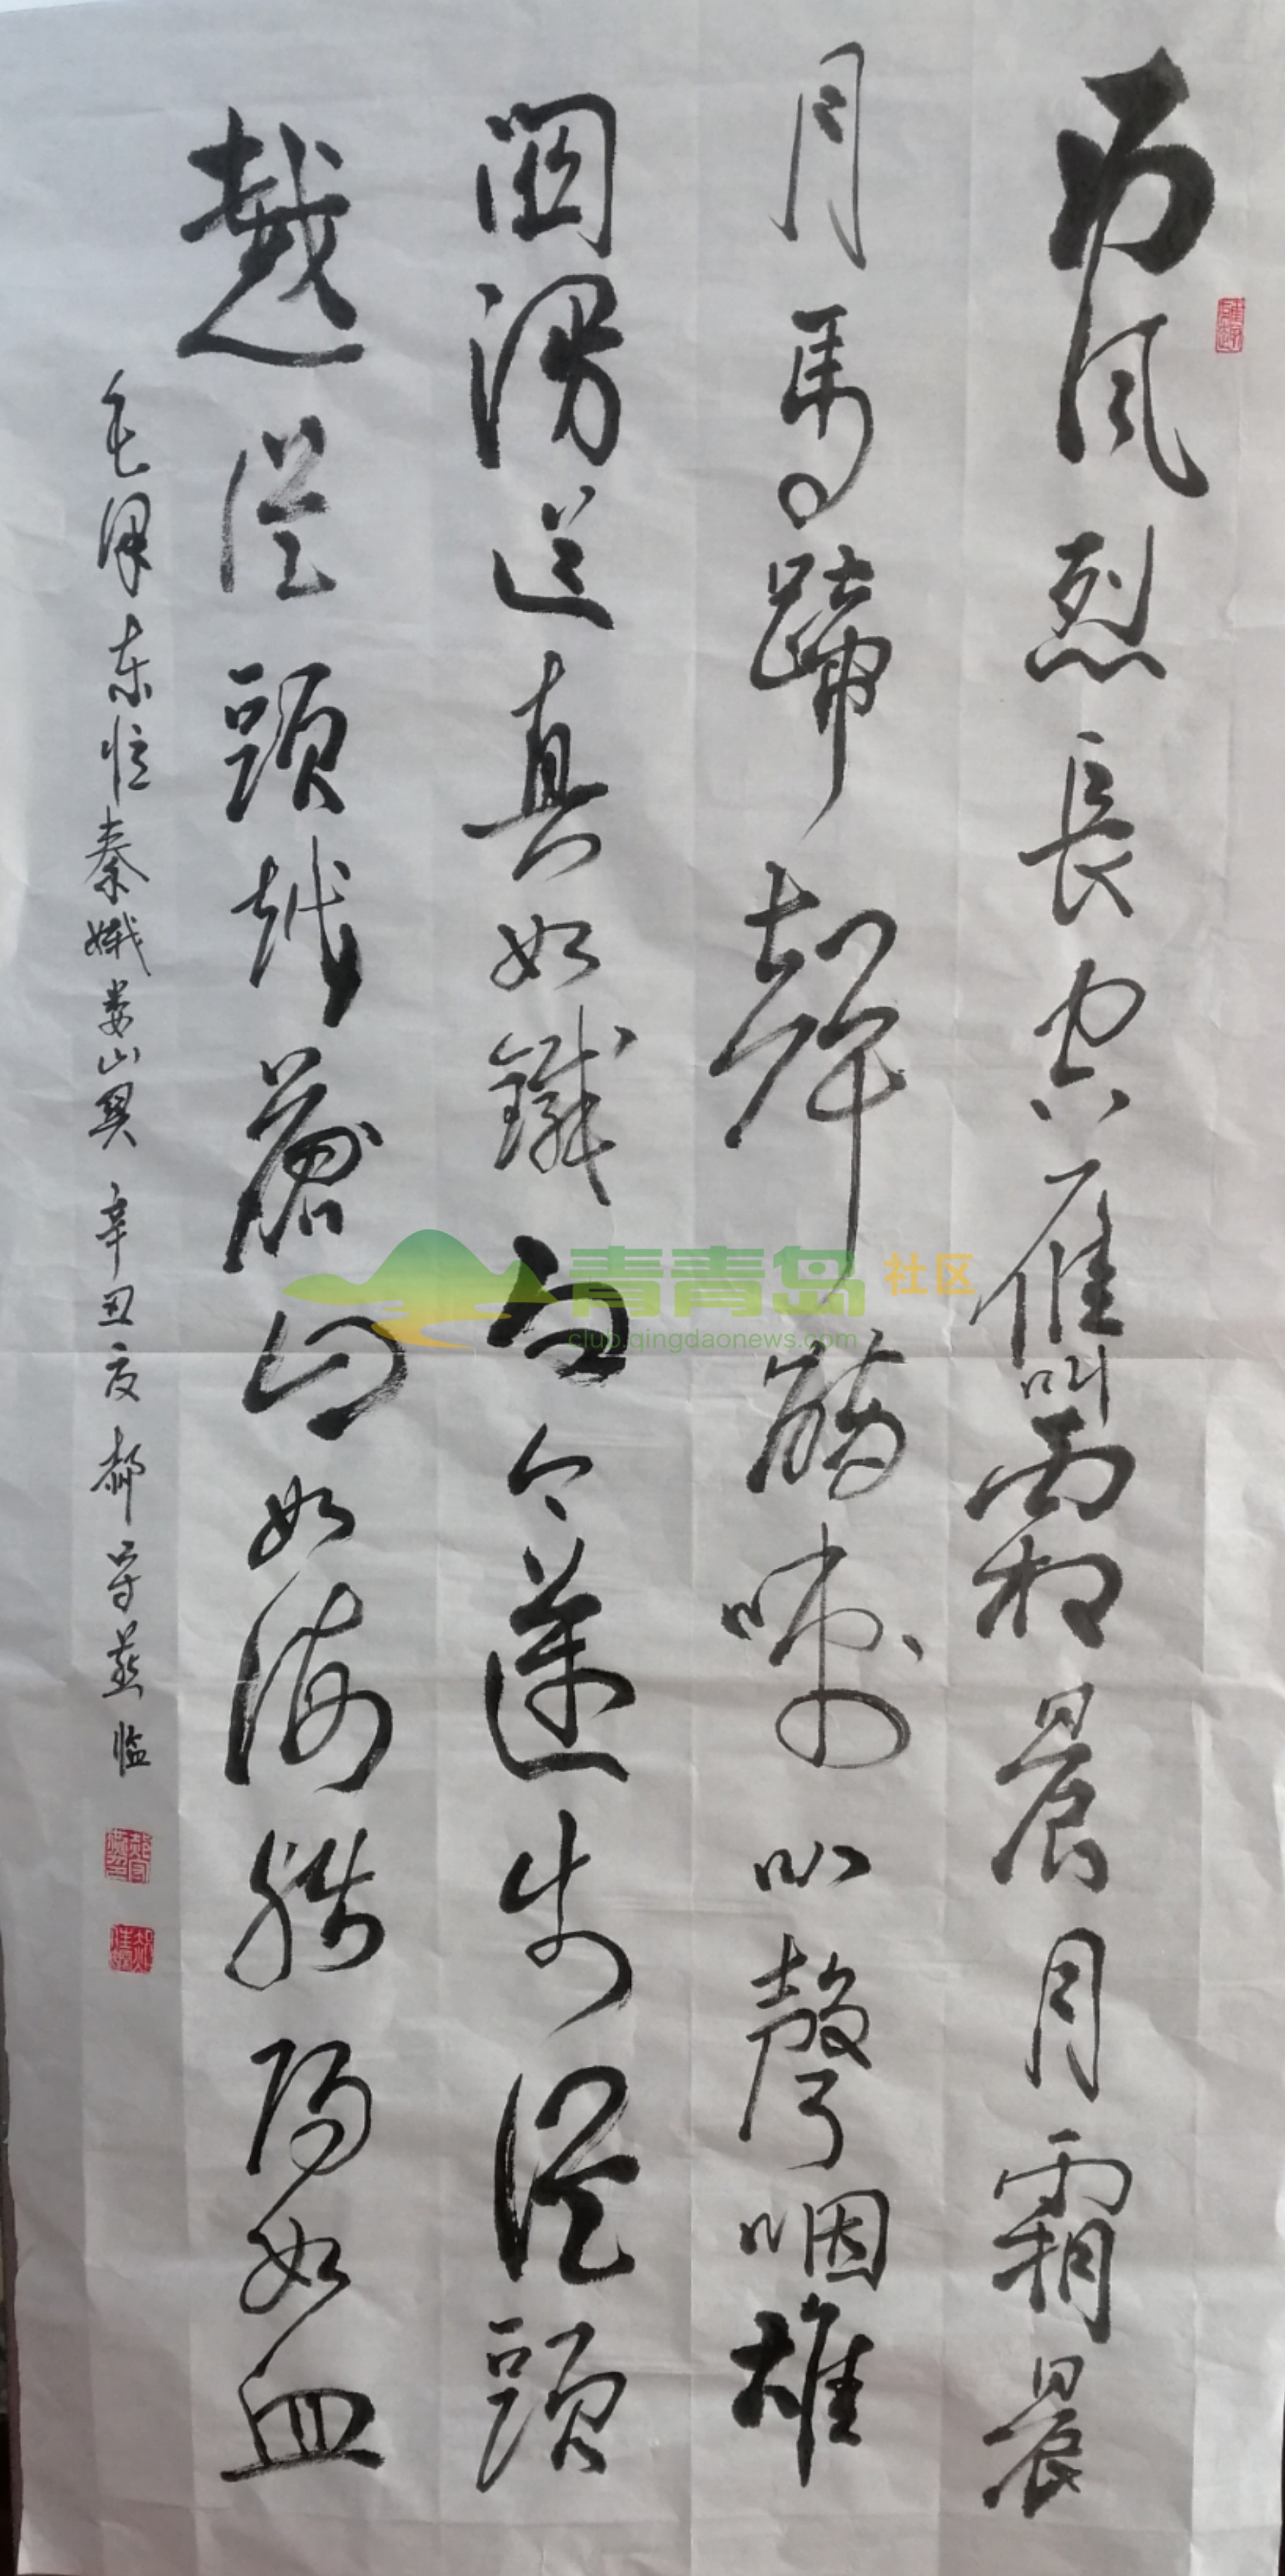 西風烈長空雁叫霜晨月霜晨
月馬蹄聲碎喇叭聲咽雄
關漫道真如鐵而今邁步從頭
越從頭越蒼山如海殘陽如血
毛泽东忆秦娥娄山関 辛丑夏 郝守燕临
青青岛社区
club.qingdaonews.com